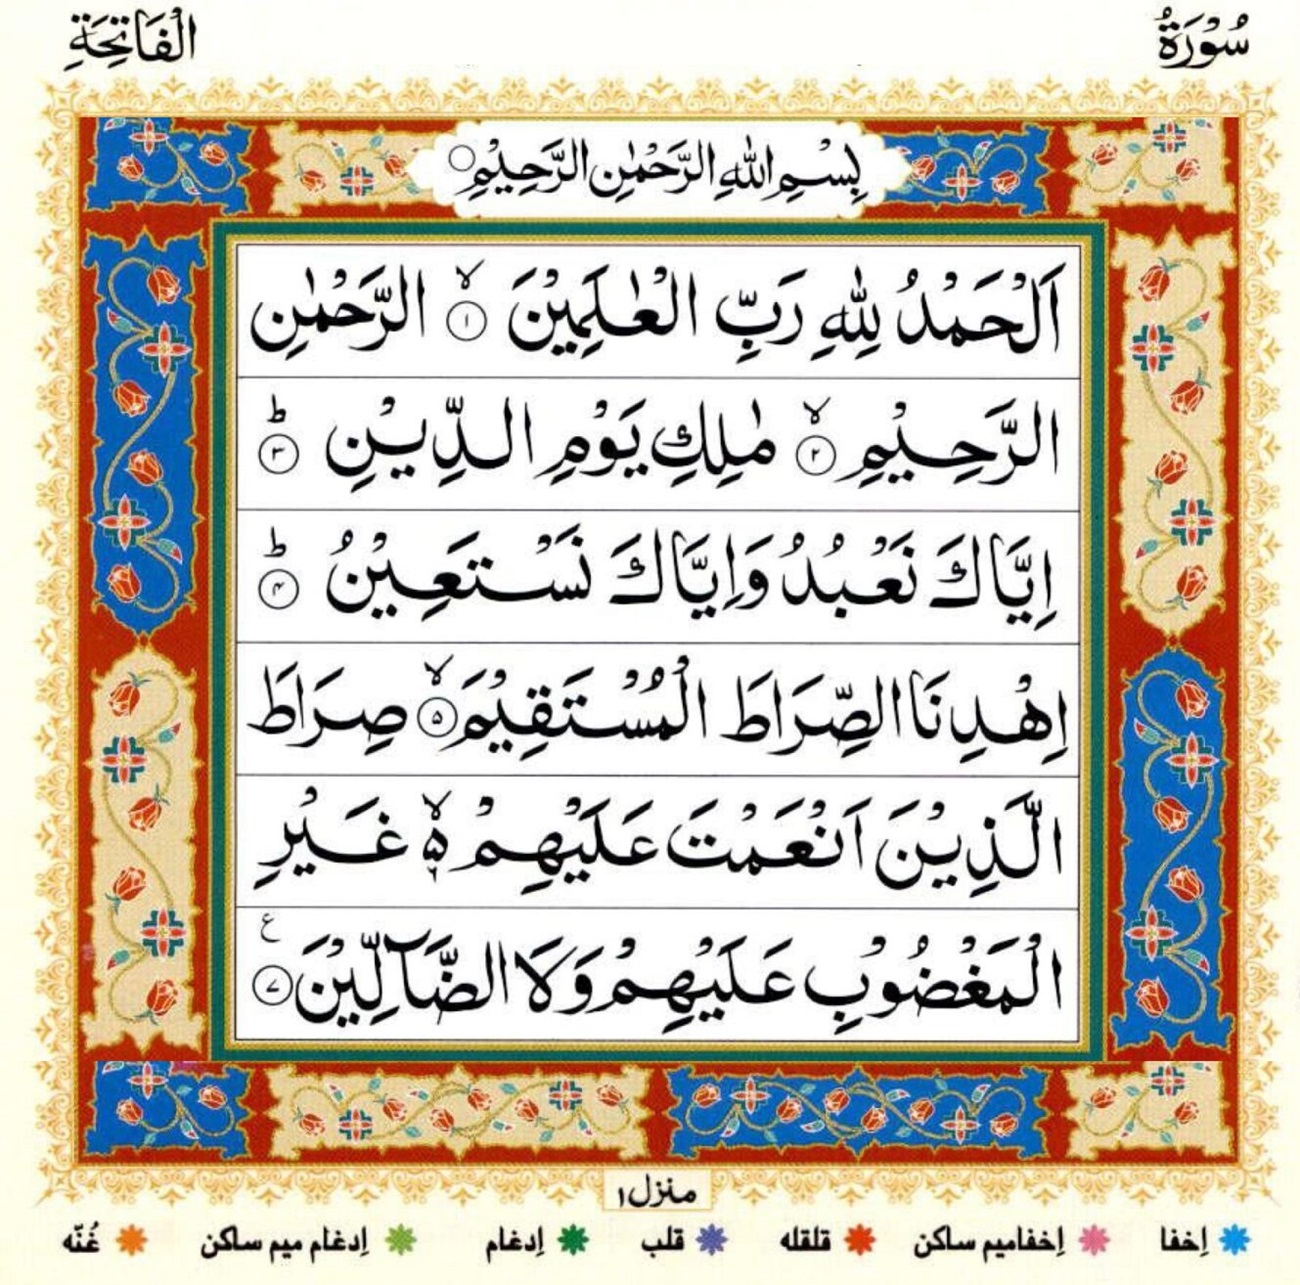 سُوْرَةُ الْفَاتِحَةِ
بِسْمِ اللهِ الرَّحْمٰنِ الرَّحِيْمِ
اَلْحَمْدُ لِلّٰهِ رَبِّ الْعٰلَمِيْنَ ۙ﴿۱﴾ الرَّحْمٰنِ
الرَّحِيْمِ ۙ﴿۲﴾ مٰلِكِ يَوْمِ الدِّيْنِ ؕ﴿۳﴾
اِيَّاكَ نَعْبُدُ وَاِيَّاكَ نَسْتَعِيْنُ ؕ﴿۴﴾
اِهْدِنَا الصِّرَاطَ الْمُسْتَقِيْمَ ۙ﴿۵﴾ صِرَاطَ
الَّذِيْنَ اَنْعَمْتَ عَلَيْهِمْ ۙ۬ۦ غَيْرِ
الْمَغْضُوْبِ عَلَيْهِمْ وَلَا الضَّآلِّيْنَ ﴿۷﴾ ع
منزل ۱
اِخفا اِخفامیم ساکن قلقله قلب اِدغام اِدغام میم ساکن غُنّه